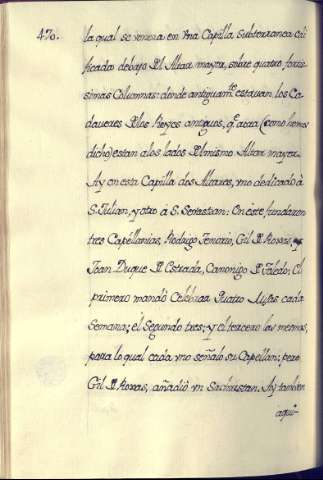 470.
la qual se venera en vna Capilla Subterranea edi
ficada debajo Dl Altar mayor, sobre quatro fortis
simas Colunnas: donde antiguamte. estavan los Ca
daveres Dlos Reyes antiguos, q̃ aora (como hemos
dicho) estan alos lados Dl mismo Altar mayor.
Ay en esta Capilla dos Altares, vno dedicado à
S. Julian, y otro à S. Sevastian: En este fundaron
tres Capellanias, Rodrigo Tenorio, Gil D Roxas, y
Joan Duque D Estrada, Canonigo D Toledo: El
primero mandò Celebrar Quatro Missas cada
Semana; el Segundo tres; y el tercero las mesmas,
para lo qual cada vno señalo su Capellan; pero
Gil D Roxas, añadiò vn Sachristan. Ay tambien
aqui-